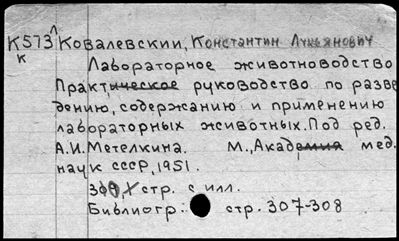 К573 Ковалевский, Константин Лукьянович
К
Лабораторное животноводство
Практическое руководство по разве
дению, содержанию и применению
лабораторных животных. Под ред.
А.И. Метелкина. М., Академия мед.
наук СССР, 1951.
стр. с илл.
Библиогр.: стр. 307-308